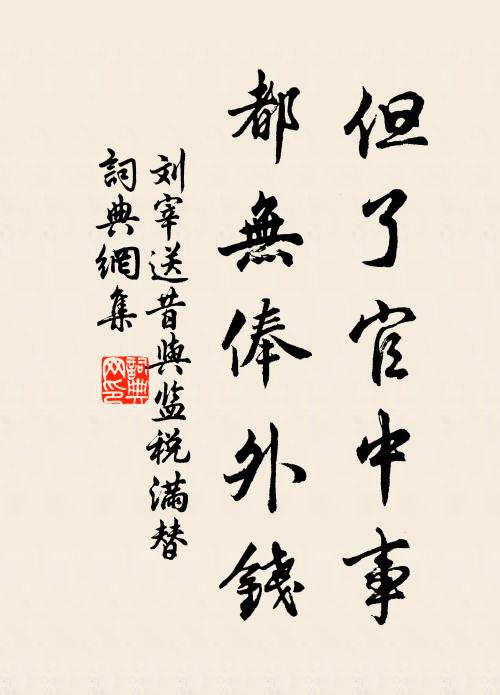 但了官中事
都無俸外錢
刘宰送昔與监税滿替
詞典網集
詞典
网印